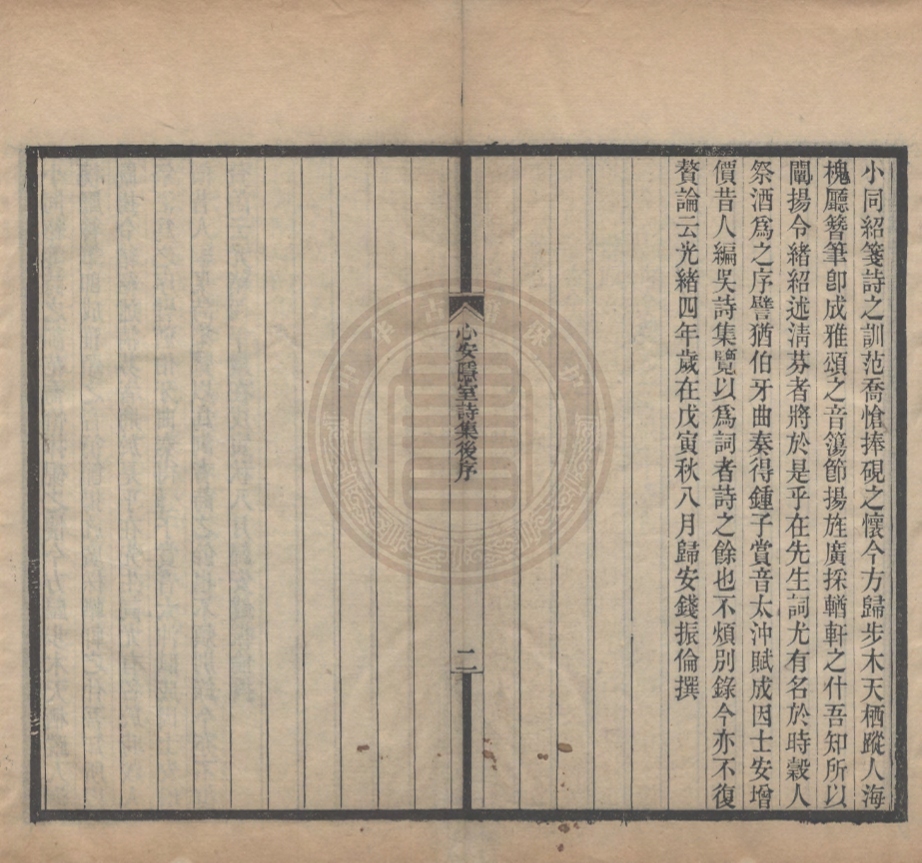 小同紹箋詩之訓范喬愴捧硯之懷今方歸步木天栖蹤人海
槐廳簪筆卽成雅頌之音蕩節揚旌廣採輶軒之什吾知所以
闡揚令緒紹述淸芬者將於是乎在先生詞尤有名於時穀人
祭酒爲之序譬猶伯牙曲奏得鍾子賞音太沖賦成因士安增
價昔人編吳詩集覽以爲詞者詩之餘也不煩別錄今亦不復
贅論云光緒四年歲在戊寅秋八月歸安錢振倫撰
心安隱室詩集後序
二